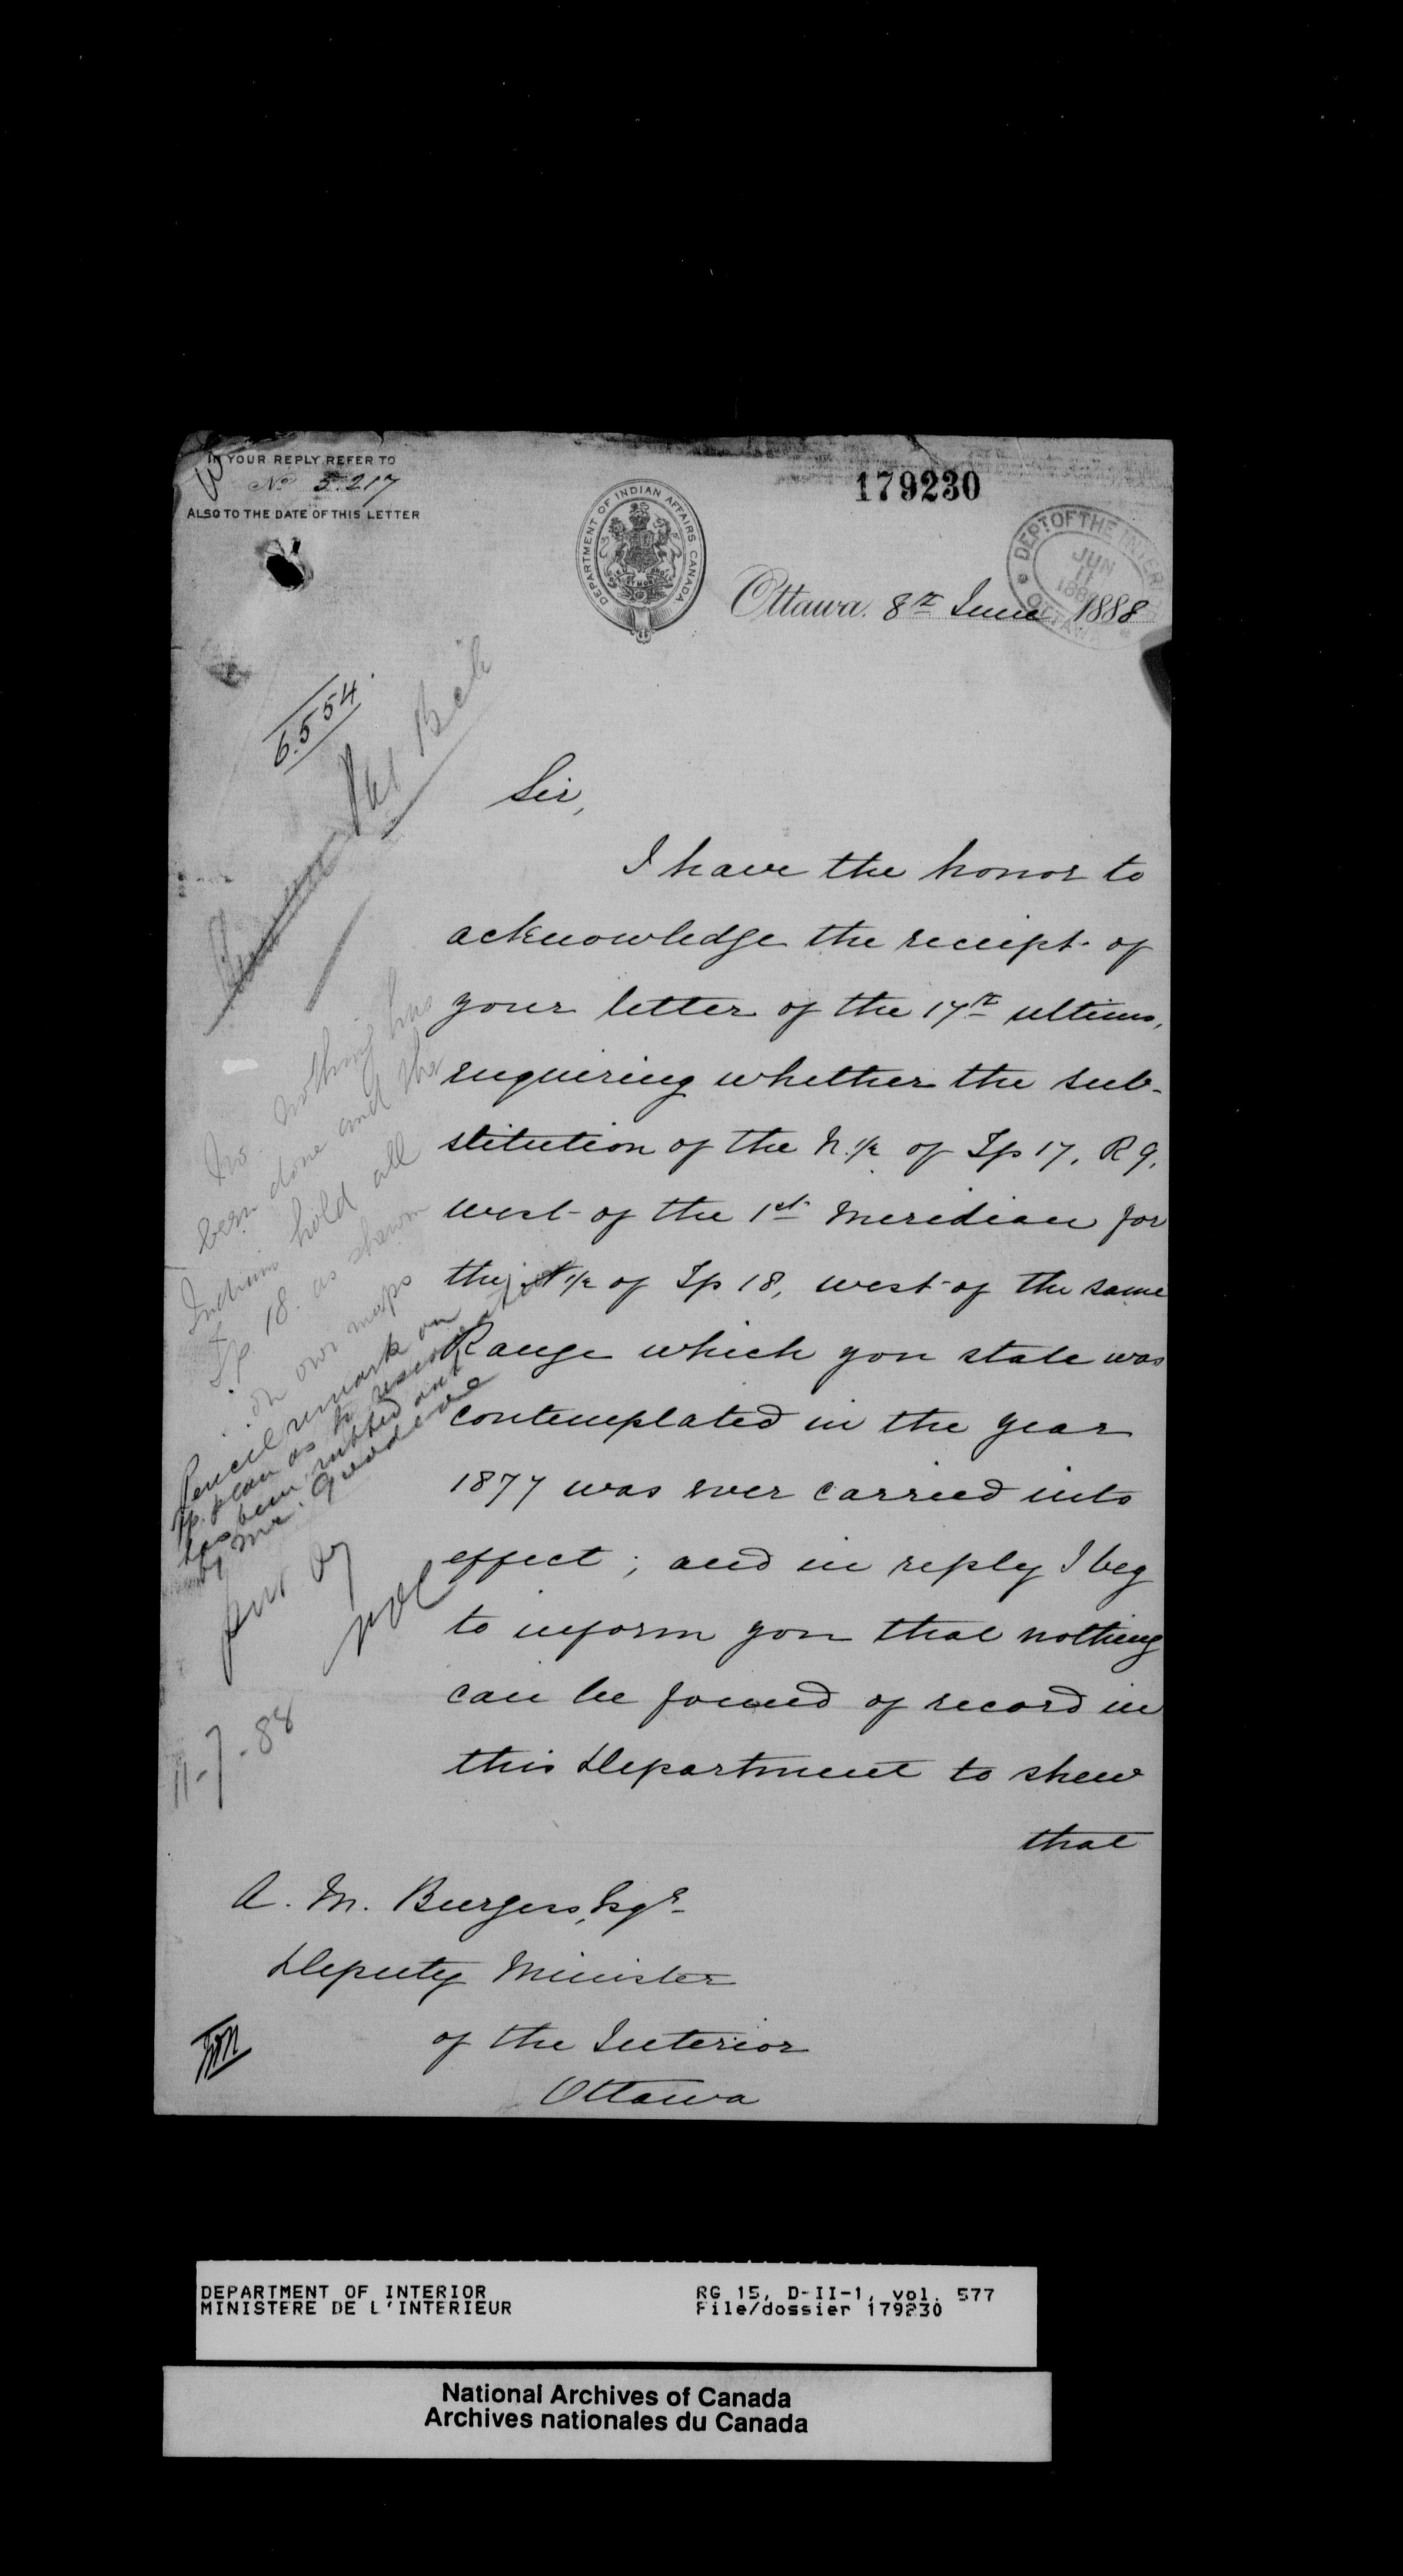 IN YOUR REPLY REFER TO
No 5.217
ALSO TO THE DATE OF THIS LETTER
179230
DEPARTMENT OF INDIAN AFFAIRS. CANADA.
DEPT OF THE INTER
JUN
11
188
OTTAWA
Ottawa. 8th June 1888
6.554
Sir,
I have the honor to
acknowledge the receipt of
your letter of the 17th ultimo,
enquiring whether the sub-
stitution of the N. 1/2 of Tp 17, R 9,
west of the 1st Meridian for
the N 1/2 of Tp 18, west of the same
Range which you state was
contemplated in the year
1877 was ever carried into
effect; and in reply I beg
to inform you that nothing
can be found of record in
this Department to shew
that
A. M. Burgess, Esqr
Deputy Minister
of the Interior
Ottawa
No nothing has
been done and the
Indians hold all
Tp. 18. as shewn
on our maps
Pencil remark on
Tp. plan as to
has been rubbed out
by Mr.
put by
11-7-88
DEPARTMENT OF INTERIOR
MINISTERE DE L'INTERIEUR
RG 15, D-II-1, vol. 577
File/dossier 179230
National Archives of Canada
Archives nationales du Canada